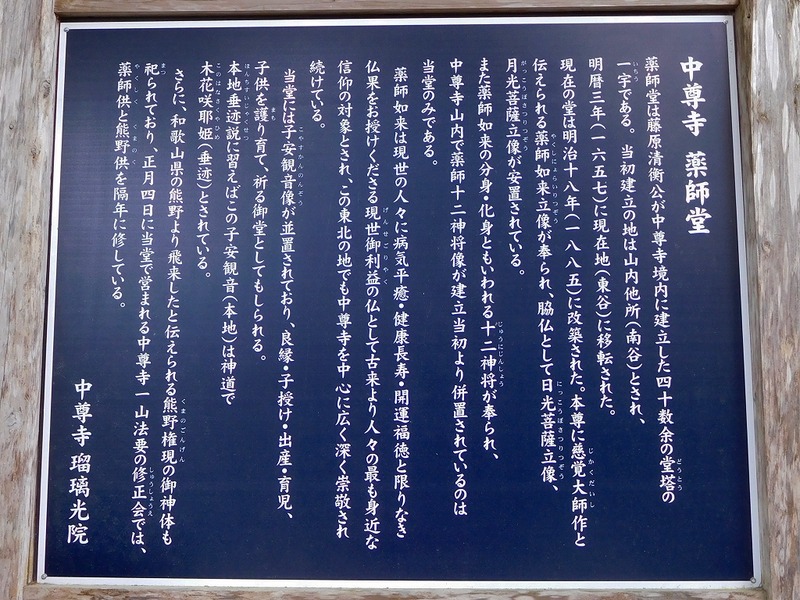 中尊寺 薬師堂
薬師堂は藤原清衡公が中尊寺境内に建立した四十数余の堂塔の
一宇である。当初建立の地は山内他所(南谷)とされ、
明暦三年(一六五七)に現在地(東谷)に移転された。
現在の堂は明治十八年(一八八五)に改築された。本尊に慈覚大師作と
伝えられる薬師如来立像が奉られ、脇仏として日光菩薩立像、
月光菩薩立像が安置されている。
また薬師如来の分身・化身ともいわれる十二神将が奉られ、
中尊寺山内で薬師十二神将像が建立当初より併置されているのは
当堂のみである。
薬師如来は現世の人々に病気平癒・健康長寿・開運福徳と限りなき
仏果をお授けくださる現世御利益の仏として古来より人々の最も身近な
信仰の対象とされ、この東北の地でも中尊寺を中心に広く深く崇敬され
続けている。
当堂には子安観音像が並置されており、良縁・子授け・出産・育児、
子供を護り育て、祈る御堂としてもしられる。
本地垂迹説に習えばこの子安観音(本地)は神道で
木花咲耶姫(垂迹)とされている。
さらに、和歌山県の熊野より飛来したと伝えられる熊野権現の御神体も
祀られており、正月四日に当堂で営まれる中尊寺一山法要の修正会では、
薬師供と熊野供を隔年に修している。
中尊寺 瑠璃光院